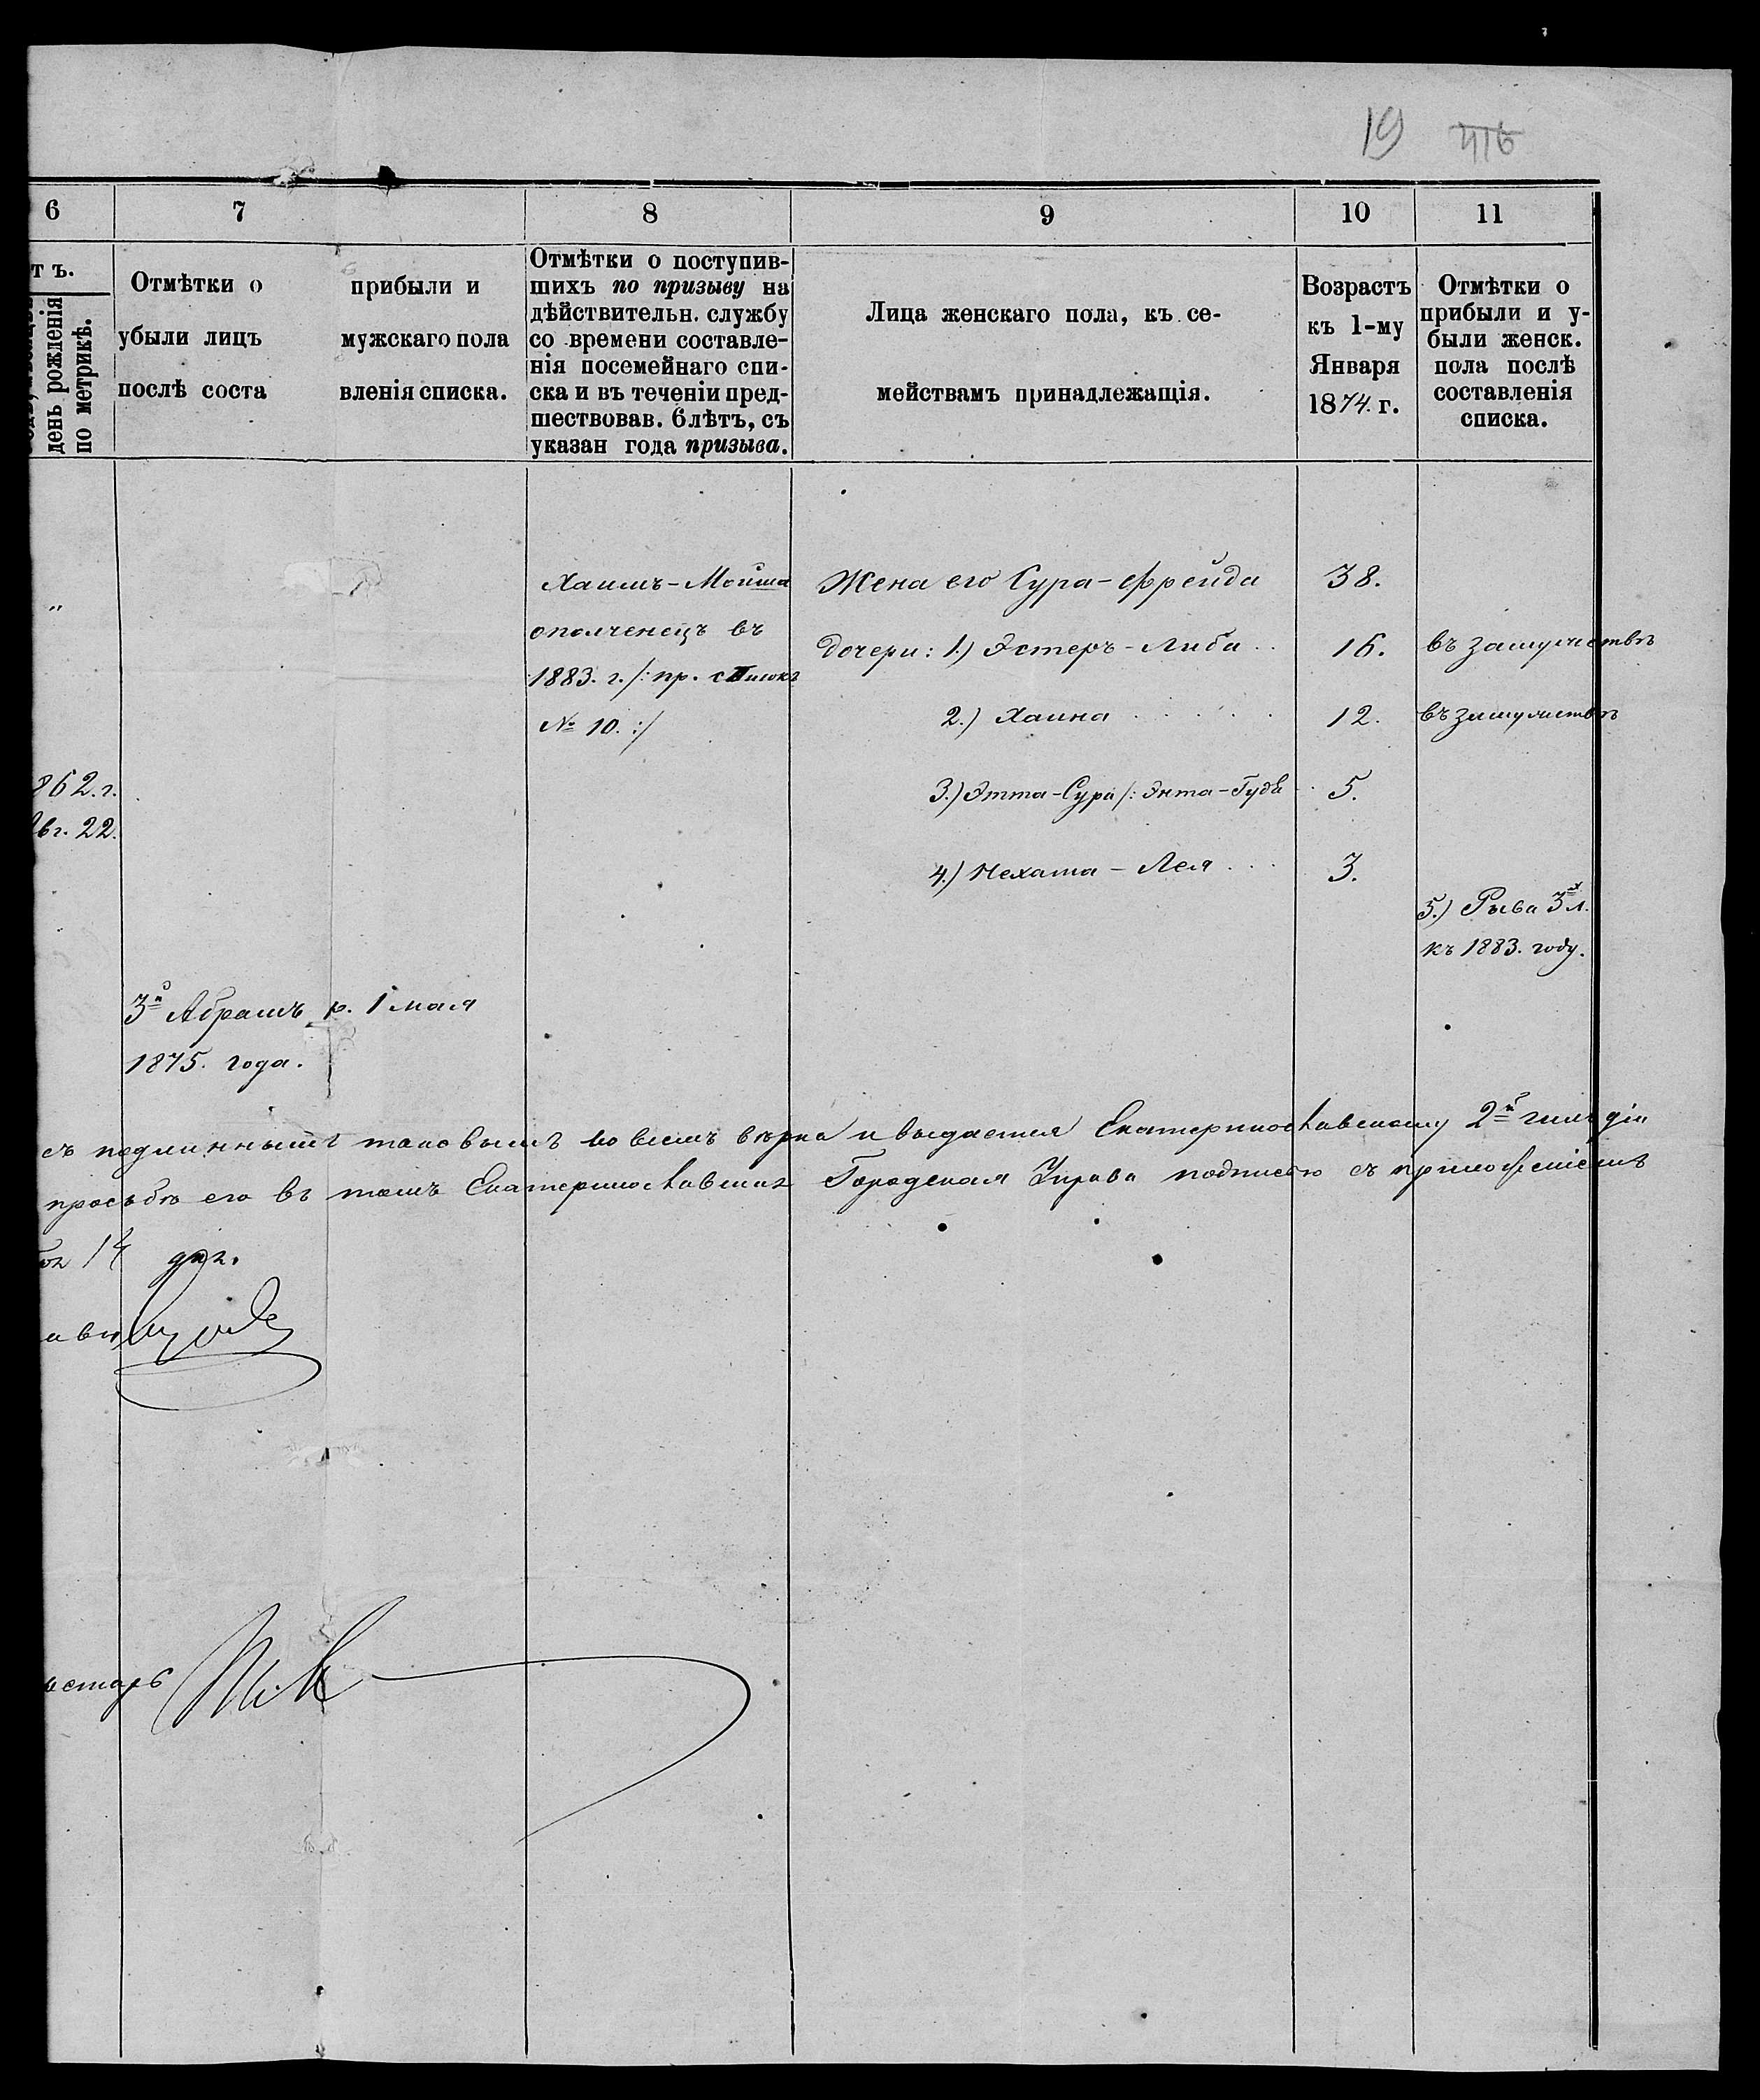 19 416
6 7 8 9 10 11
тъ.
день рожденія
по метрикѣ.
Отмѣтки о прибыли и
убыли лицъ мужскаго пола
послѣ соста вленія списка.
Отмѣтки о поступив-
шихъ по призыву на
дѣйствительн. службу
со времени составле-
нія посемейнаго спи-
ска и въ теченіи пред-
шествовав. 6 лѣтъ, съ
указан года призыва.
Лица женскаго пола, къ се-
мействамъ принадлежащія.
Возрастъ
къ 1-му
Января
1874. г.
Отмѣтки о
прибыли и у-
были женск.
пола послѣ
составленія
списка.
"
862. г.
Авг. 22.
3й Абрамъ р. 1 мая
1875. года.
Хаимъ-Мойша
ополченецъ въ
1883. г. /: пр. списокъ
№ 10. :/
Жена его Сура-Фрейда 38.
Дочери: 1.) Эстеръ-Либа .. 16. въ замужствѣ
2.) Хаина . . . . . 12. въ замужствѣ
3.) Этта-Сура /: Энта-Гудя 5.
4.) Нехама - Лея . . . 3.
5.) Рыва 3х л.
къ 1883. году.
съ подлиннымъ таковымъ во всемъ вѣрна и выдается Екатеринославскому 2й гильдіи
просьбѣ его въ томъ Екатеринославская Городская Управа подписью съ приложеніемъ
14 дня.